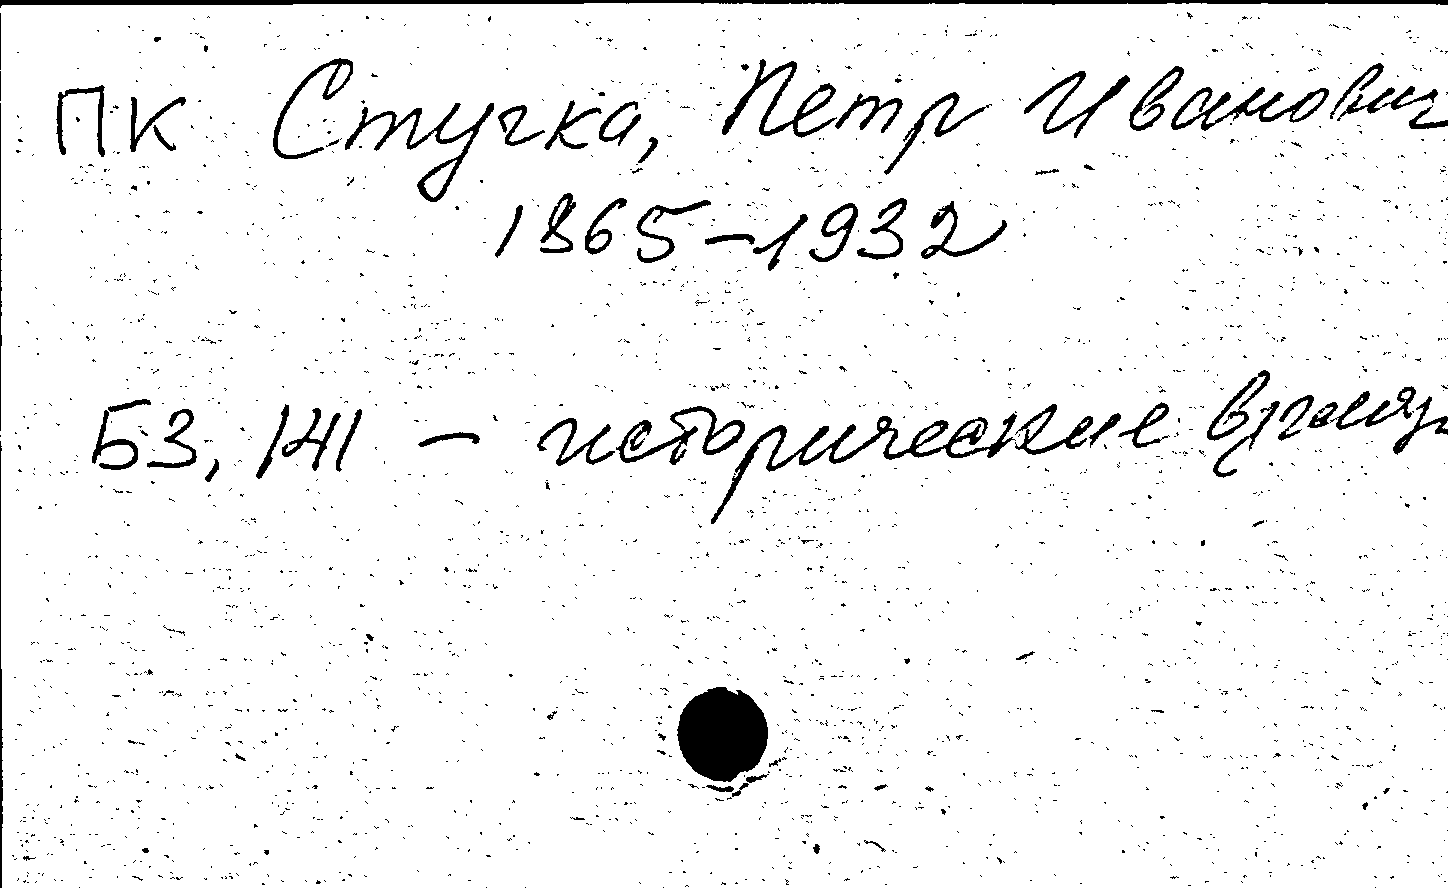 ПК Стучка, Петр Иванович
1865-1932
Б3, 141 - исторические взгляды